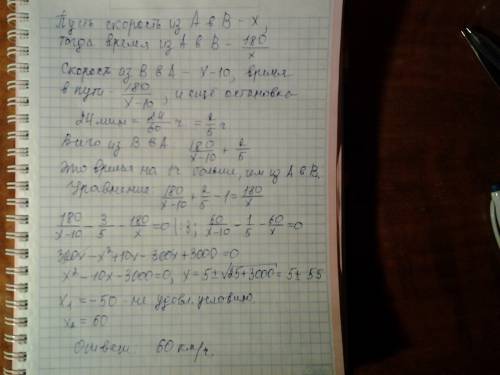 Пусть скорость из А в В - х,
тогда время из А в В - 180/х
Скорость из В в А - х-10, время
в пути 180/(х-10), и еще остановка
24 мин = 24/60 ч = 2/5 ч
Всего из В в А 180/(х-10) + 2/5
Это время на 1ч больше, чем из А в В.
Уравнение: 180/(х-10) + 2/5 - 1 = 180/х
180/(х-10) - 3/5 - 180/х = 0 | :3; 60/(х-10) - 1/5 - 60/х = 0
300х - х²+10х - 300х + 3000 = 0
х² - 10х - 3000 = 0, х = 5 ± √(25+3000) = 5 ± 55
х₁ = -50 - не удовл. условию
х₂ = 60
Ответ: 60 км/ч.